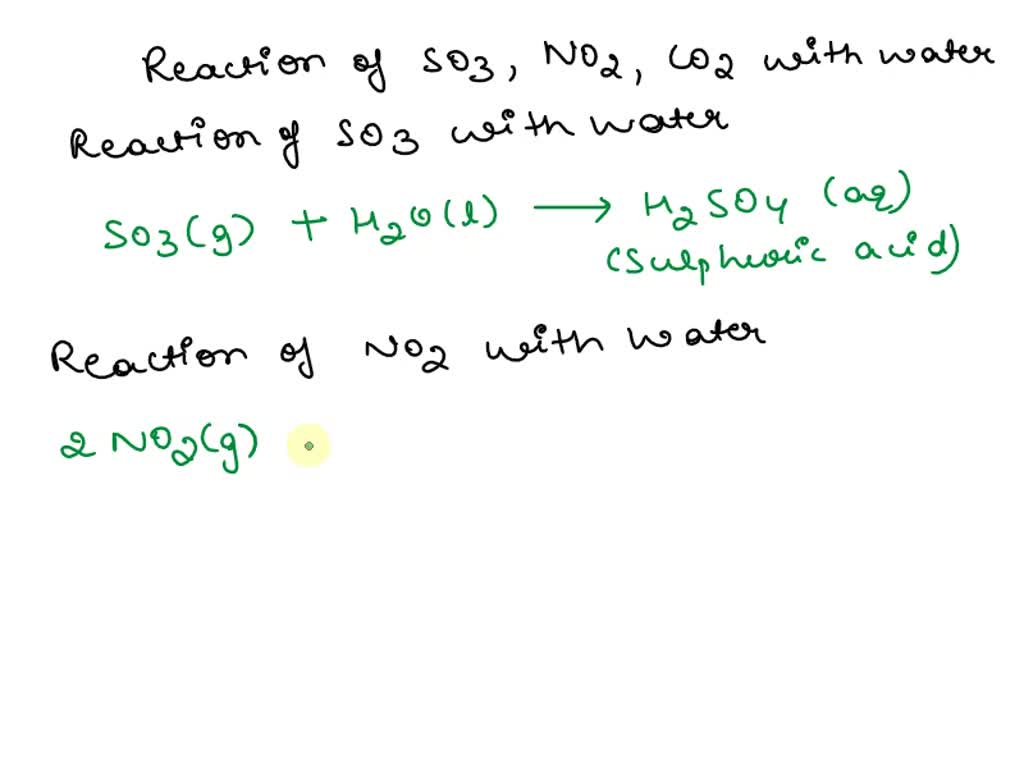 Reaction of SO3, NO2, CO2 with water
Reaction of SO3 with water
SO3(g) + H2O(l) ⟶ H2SO4 (aq)
(Sulphuric acid)
Reaction of NO2 with water
2 NO2(g)